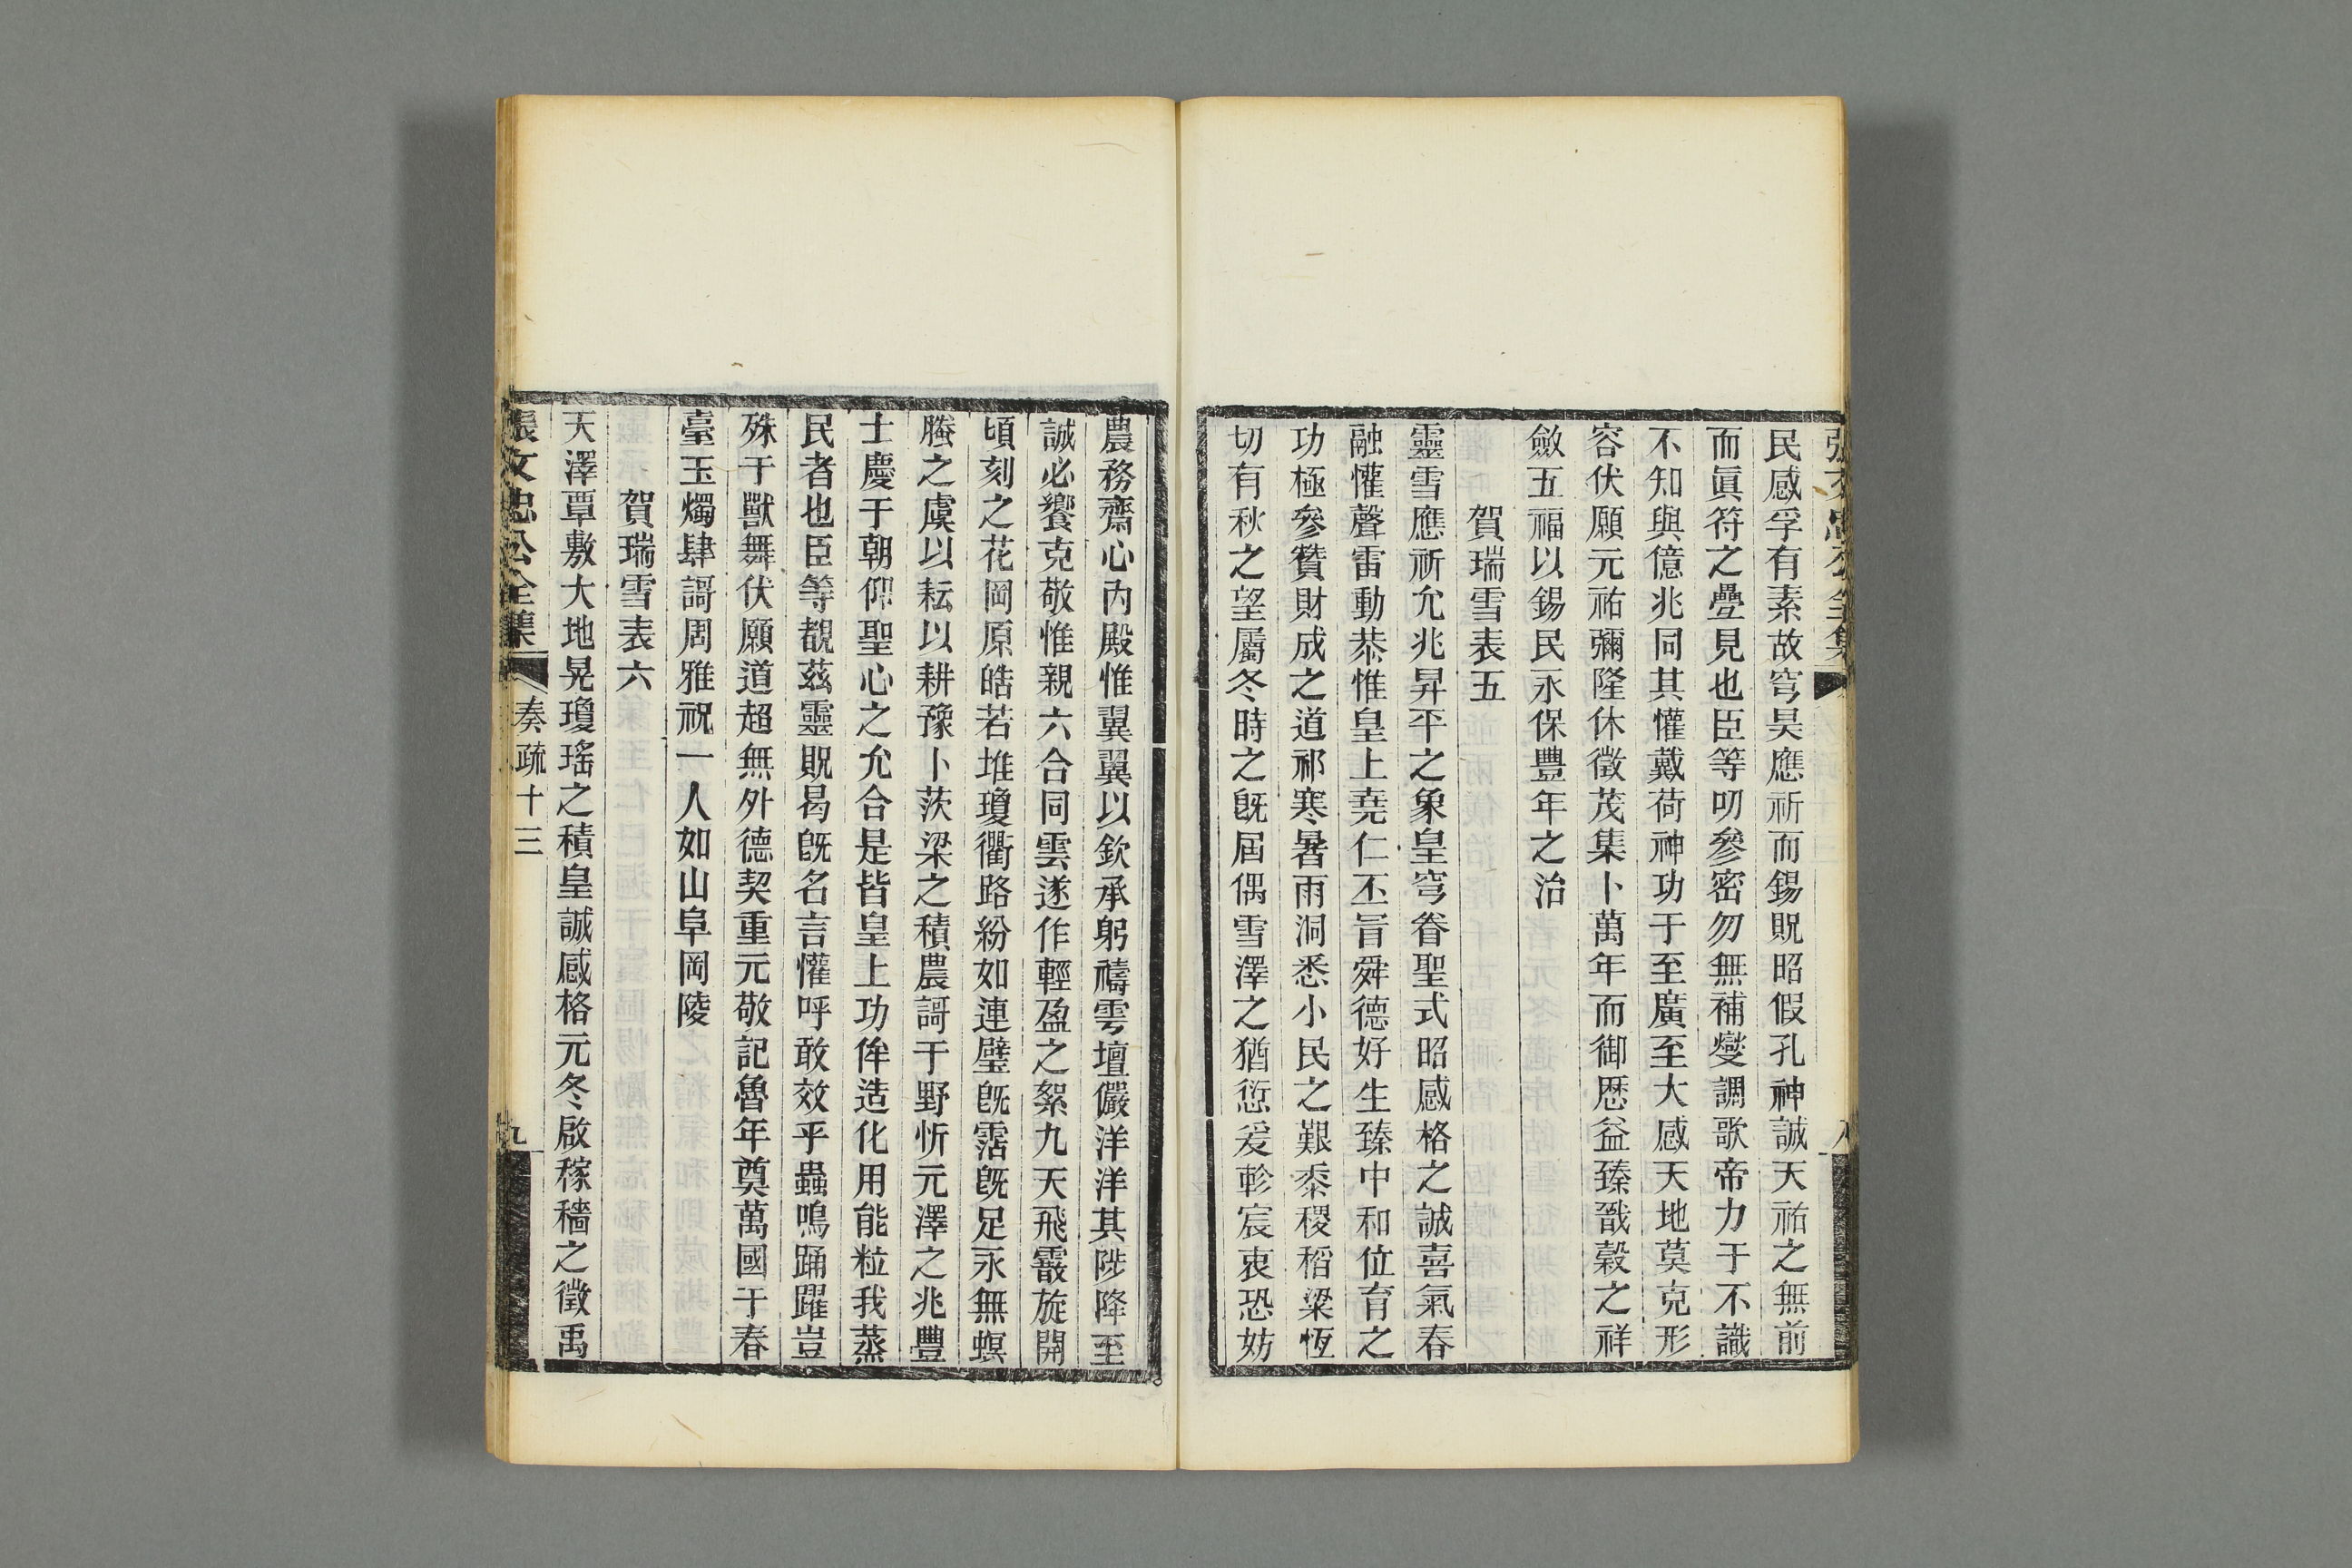 張文忠公全集
八
民感孚有素故穹昊應祈而錫貺昭假孔神誠天祐之無前
而眞符之疊見也臣等叨參密勿無補燮調歌帝力于不識
不知與億兆同其懽戴荷神功于至廣至大感天地莫克形
容伏願元祐彌隆休徵茂集卜萬年而御歷益臻戩穀之祥
斂五福以錫民永保豐年之治
賀瑞雪表五
靈雪應祈允兆昇平之象皇穹眷聖式昭感格之誠喜氣春
融懽聲雷動恭惟皇上堯仁丕冒舜德好生臻中和位育之
功極參贊財成之道祁寒暑雨洞悉小民之艱黍稷稻粱恆
切有秋之望屬冬時之旣屆偶雪澤之猶愆爰軫宸衷恐妨
農務齋心內殿惟翼翼以欽承躬禱雩壇儼洋洋其陟降至
誠必饗克敬惟親六合同雲遂作輕盈之絮九天飛霰旋開
頃刻之花岡原皓若堆瓊衢路紛如連璧旣霑旣足永無螟
螣之虞以耘以耕豫卜茨梁之積農謌于野忻元澤之兆豐
士慶于朝仰聖心之允合是皆皇上功侔造化用能粒我蒸
民者也臣等覩茲靈貺曷旣名言懽呼敢效乎蟲鳴踊躍豈
殊于獸舞伏願道超無外德契重元敬記魯年奠萬國于春
臺玉燭肆謌周雅祝一人如山阜岡陵
賀瑞雪表六
天澤覃敷大地晃瓊瑤之積皇誠感格元冬啟稼穡之徵禹
張文忠公全集
奏疏十三
九